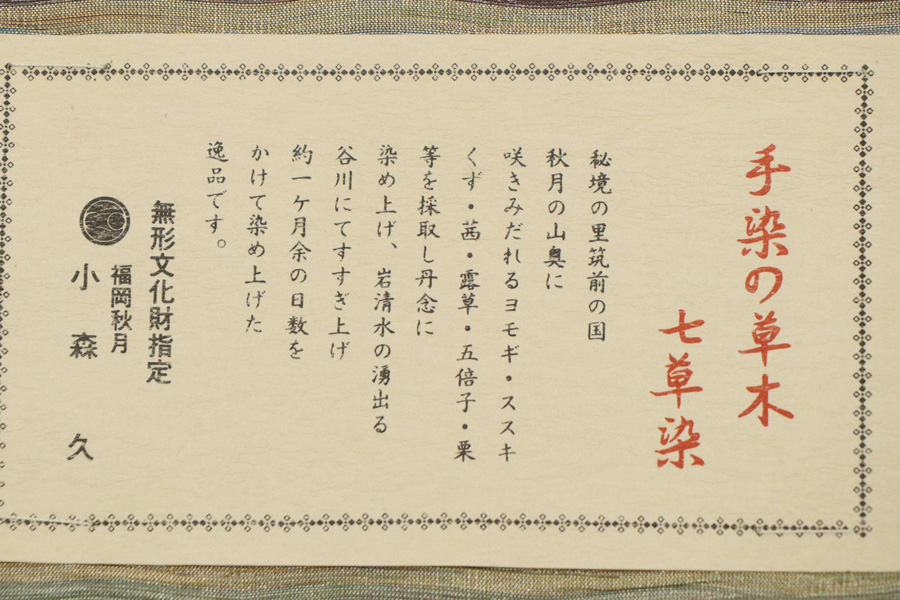 手染の草木
七草染
秘境の里筑前の国
秋月の山奥に
咲きみだれるヨモギ・ススキ
くず・茜・露草・五倍子・栗
等を採取し丹念に
染め上げ、岩清水の湧出る
谷川にてすすぎ上げ
約一ケ月余の日数を
かけて染め上げた
逸品です。
無形文化財指定
福岡秋月
小森久